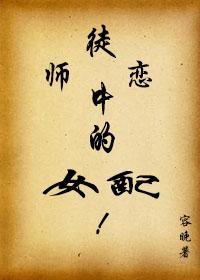 师徒恋
中的
女配
!
容晚著